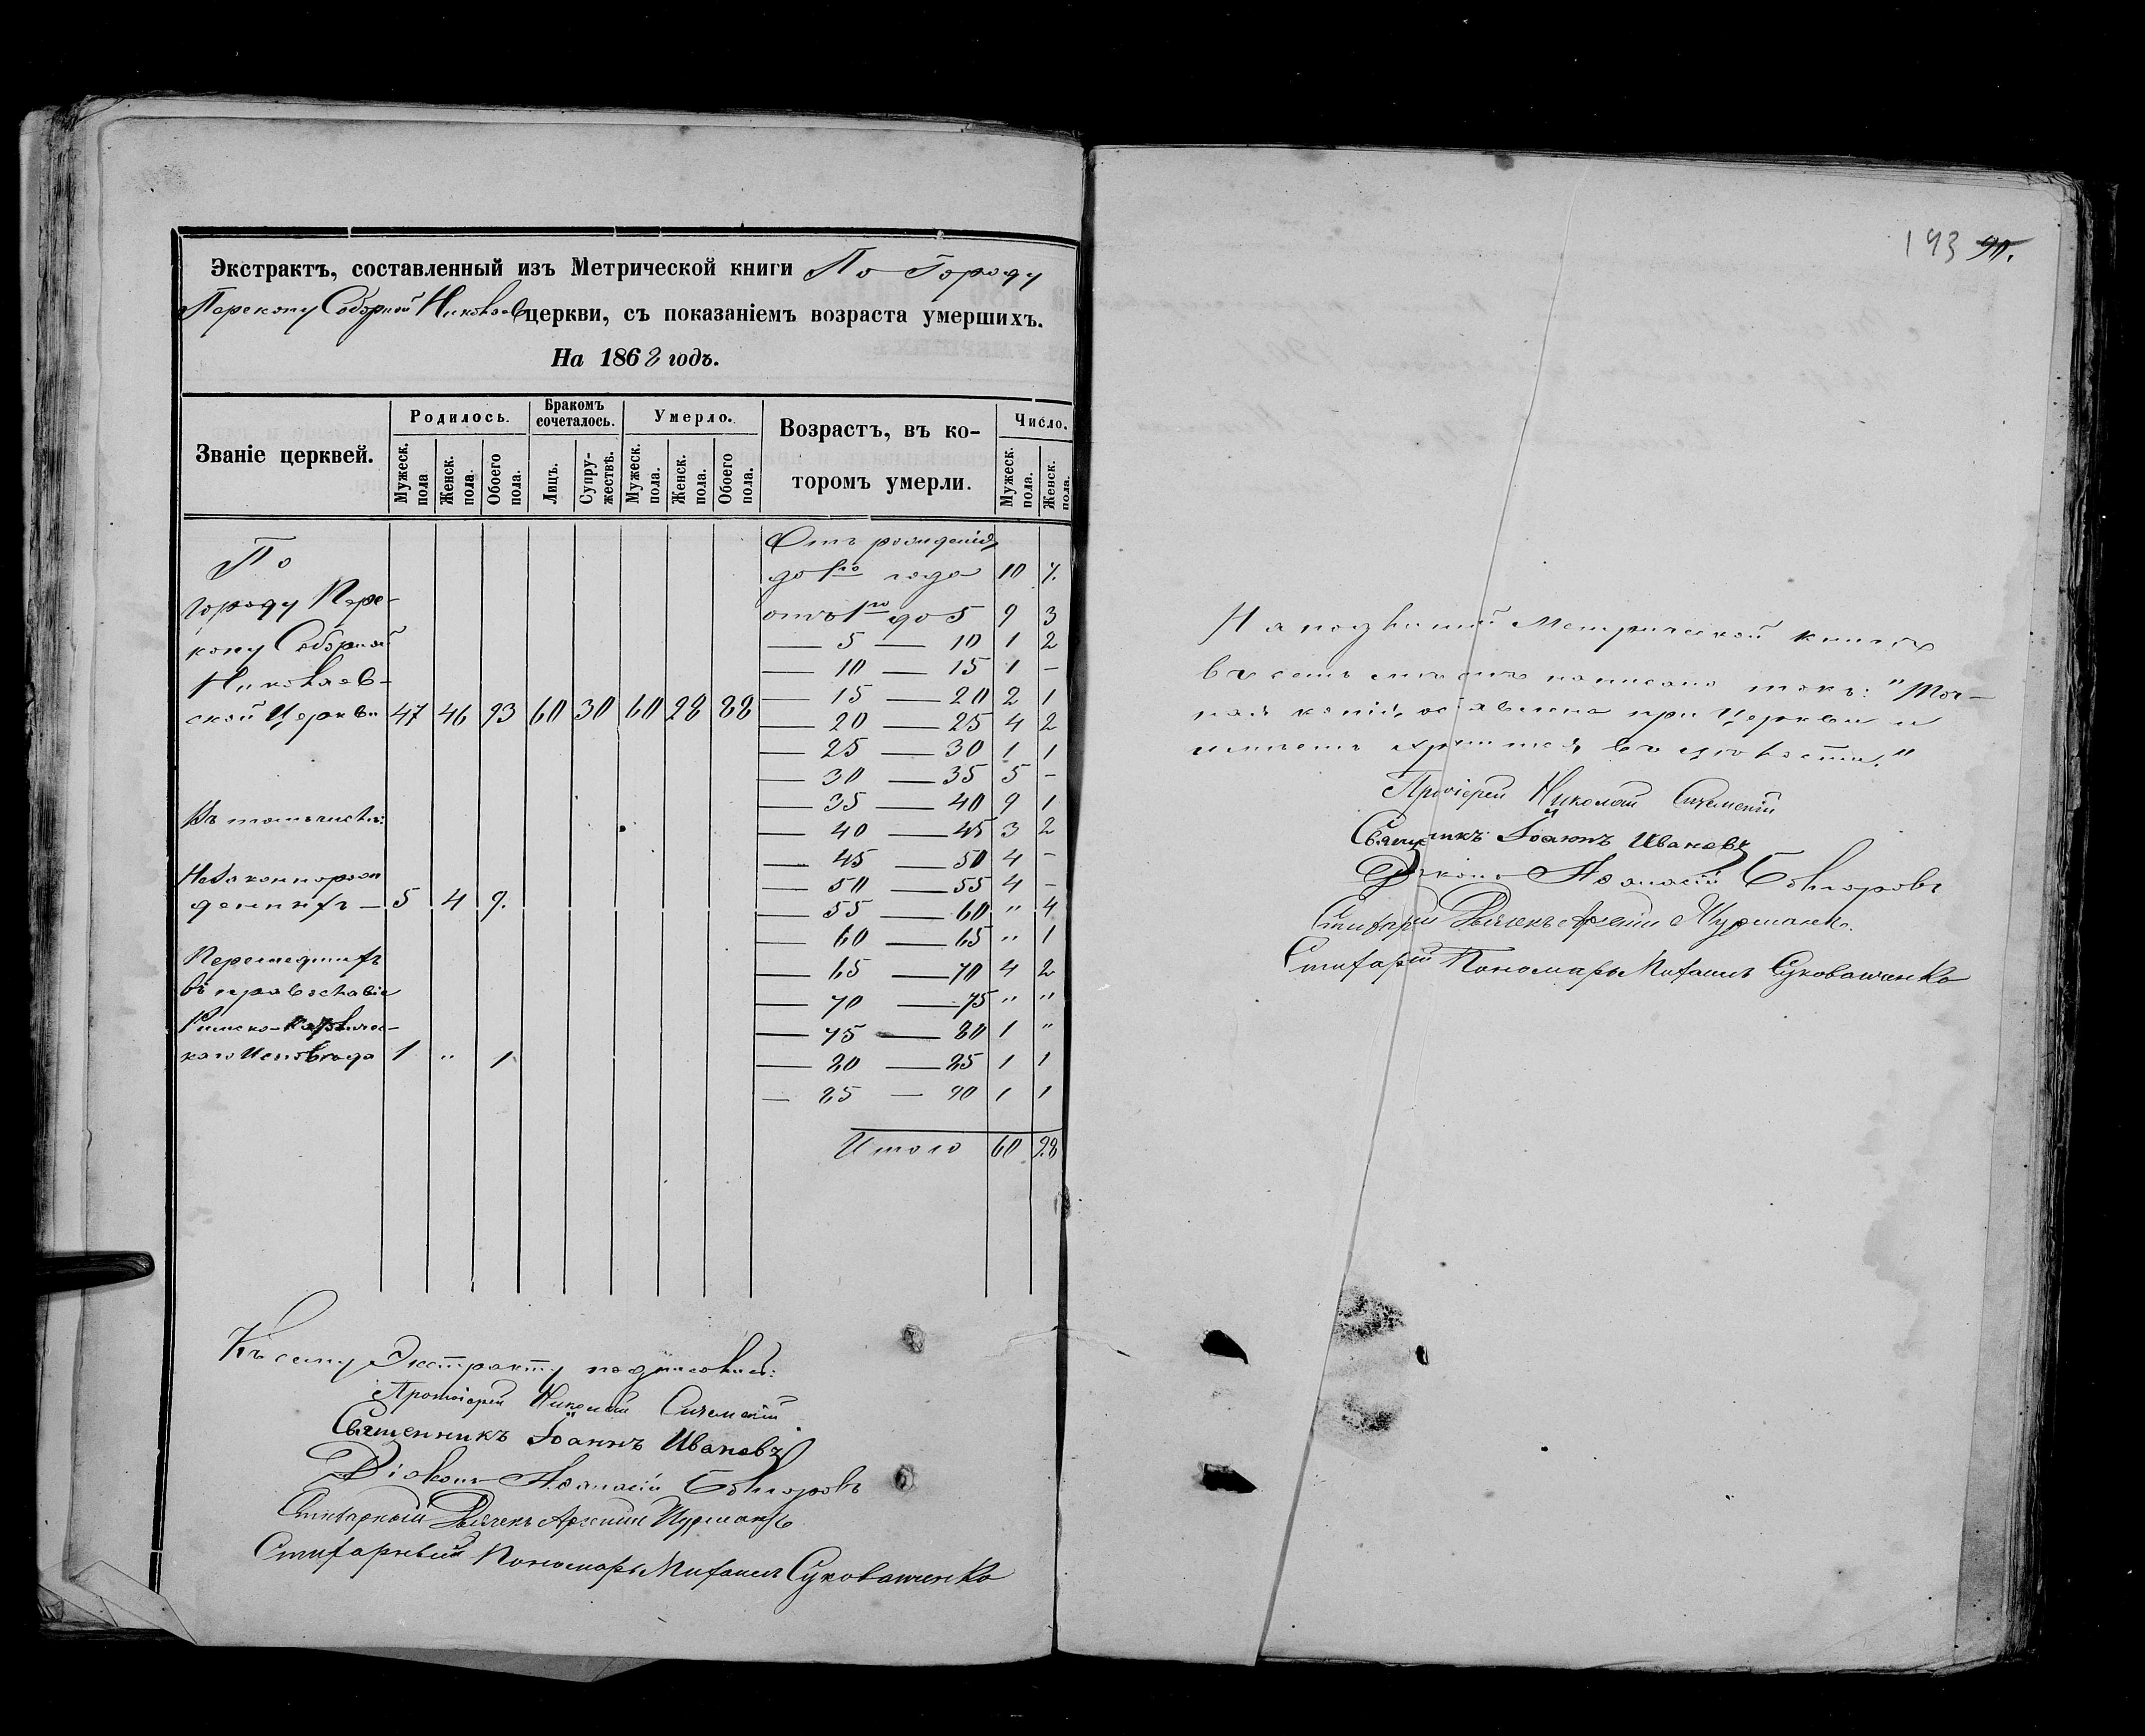 Экстрактъ, составленный изъ Метрической книги По Городу
Перекопу Соборной Николаев церкви, съ показаніемъ возраста умершихъ.
На 1868 годъ.
Званіе церквей.
Родилось.
Бракомъ сочеталось.
Умерло.
Возрастъ, въ которомъ умерли.
Число.
Мужеск. пола
Женск. пола.
Обоего пола.
Лицъ.
Супружествъ.
Мужеск. пола.
Женск. пола.
Обоего пола.
Мужеск. пола.
Женск. пола.
По
городу Пере-
копу Соборной
Николаев-
ской Церкви 47 46 93 60 30 60 28 88
Въ томъ числѣ:
Незаконнорож
денныхъ — 5 4 9.
Перешедшихъ
въ православіе
Римско-Католичес-
каго Исповѣда 1 " 1
Отъ рожденія
до 1го года 10 7.
отъ 1го до 5 9 3
— 5 — 10 1 2
— 10 — 15 1 —
— 15 — 20 2 1
— 20 — 25 4 2
— 25 — 30 1 1
— 30 — 35 5 —
— 35 — 40 9 1
— 40 — 45 3 2
— 45 — 50 4 —
— 50 — 55 4 —
— 55 — 60 " 4
— 60 — 65 " 1
— 65 — 70 4 2
— 70 — 75 " "
— 75 — 80 1 "
— 80 — 85 1 1
— 85 — 90 1 1
Итого 60 28
Къ сему Экстракту подписались:
Протоіерей Николай
Священникъ Іоаннъ Ивановъ
Діаконъ Аѳанасій
Стихарный Дьячекъ Арсеній
Стихарный Пономарь Михаилъ Суковаченко
193 90.
На подлинной Метрической книгѣ
въ семъ мѣстѣ написано такъ: "Точ-
ная копія оставлена при Церкви и
имѣетъ хранится въ цѣлости."
Протоіерей Николай
Священникъ Іоаннъ Ивановъ
Діаконъ Аѳанасій
Стихарный Дьячекъ Арсеній
Стихарный Пономарь Михаилъ Суковаченко